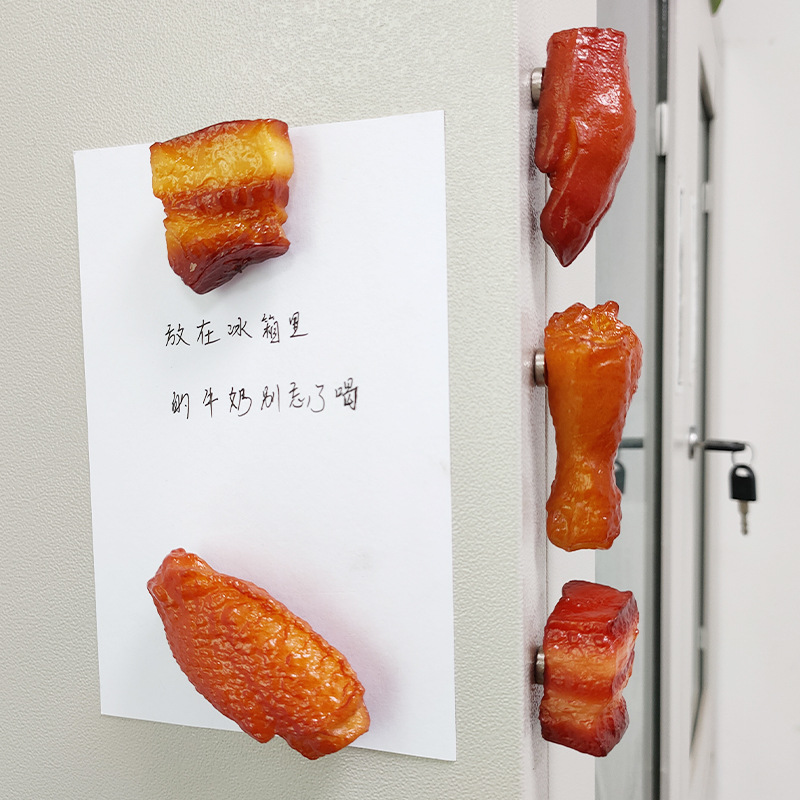 放在冰箱里
的牛奶别忘了喝